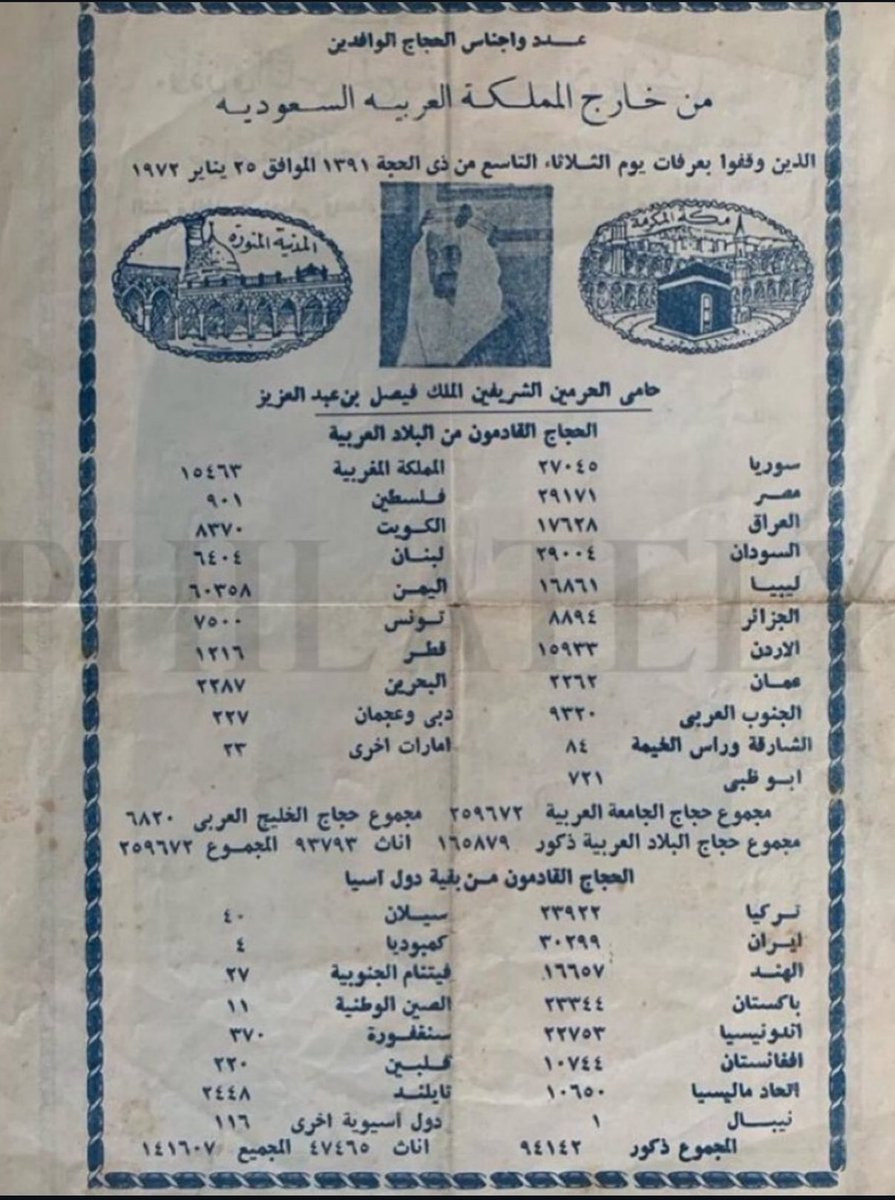 عدد واجناس الحجاج الوافدين
من خارج المملكة العربيه السعوديه
الذين وقفوا بعرفات يوم الثلاثاء التاسع من ذى الحجة ١٣٩١ الموافق ٢٥ يناير ١٩٧٢
مكة المكرمة
المدينة المنورة
حامى الحرمين الشريفين الملك فيصل بن عبد العزيز
الحجاج القادمون من البلاد العربية
سوريا ٢٧٠٤٥ المملكة المغربية ١٥٤٦٣
مصر ٢٩١٧١ فلسطين ٩٠١
العراق ١٧٦٢٨ الكويت ٨٣٧٠
السودان ٢٩٠٠٤ لبنان ٦٤٠٤
ليبيا ١٦٨٦١ اليمن ٦٠٣٥٨
الجزائر ٨٨٩٤ تونس ٧٥٠٠
الاردن ١٥٩٣٣ قطر ١٢١٦
عمان ٢٢٦٢ البحرين ٢٢٨٧
الجنوب العربى ٩٣٢٠ دبى وعجمان ٢٢٧
الشارقة وراس الخيمة ٨٤ امارات اخرى ٢٣
ابو ظبى ٧٢١
مجموع حجاج الجامعة العربية ٢٥٩٦٧٢ مجموع حجاج الخليج العربى ٦٨٢٠
مجموع حجاج البلاد العربية ذكور ١٦٥٨٧٩ اناث ٩٣٧٩٣ المجموع ٢٥٩٦٧٢
الحجاج القادمون من بقية دول آسيا
تركيا ٢٣٩٢٢ سيلان ٤٠
ايران ٣٠٢٩٩ كمبوديا ٤
الهند ١٦٦٥٧ فيتنام الجنوبية ٢٧
باكستان ٢٣٣٤٤ الصين الوطنية ١١
اندونيسيا ٢٢٧٥٣ سنغفورة ٣٧٠
افغانستان ١٠٧٤٤ فلبين ٢٢٠
اتحاد ماليسيا ١٠٦٥٠ تايلند ٢٤٤٨
نيبال ١ دول اسيوية اخرى ١١٦
المجموع ذكور ٩٤١٤٢ اناث ٤٧٤٦٥ المجميع ١٤١٦٠٧
PHILATELY